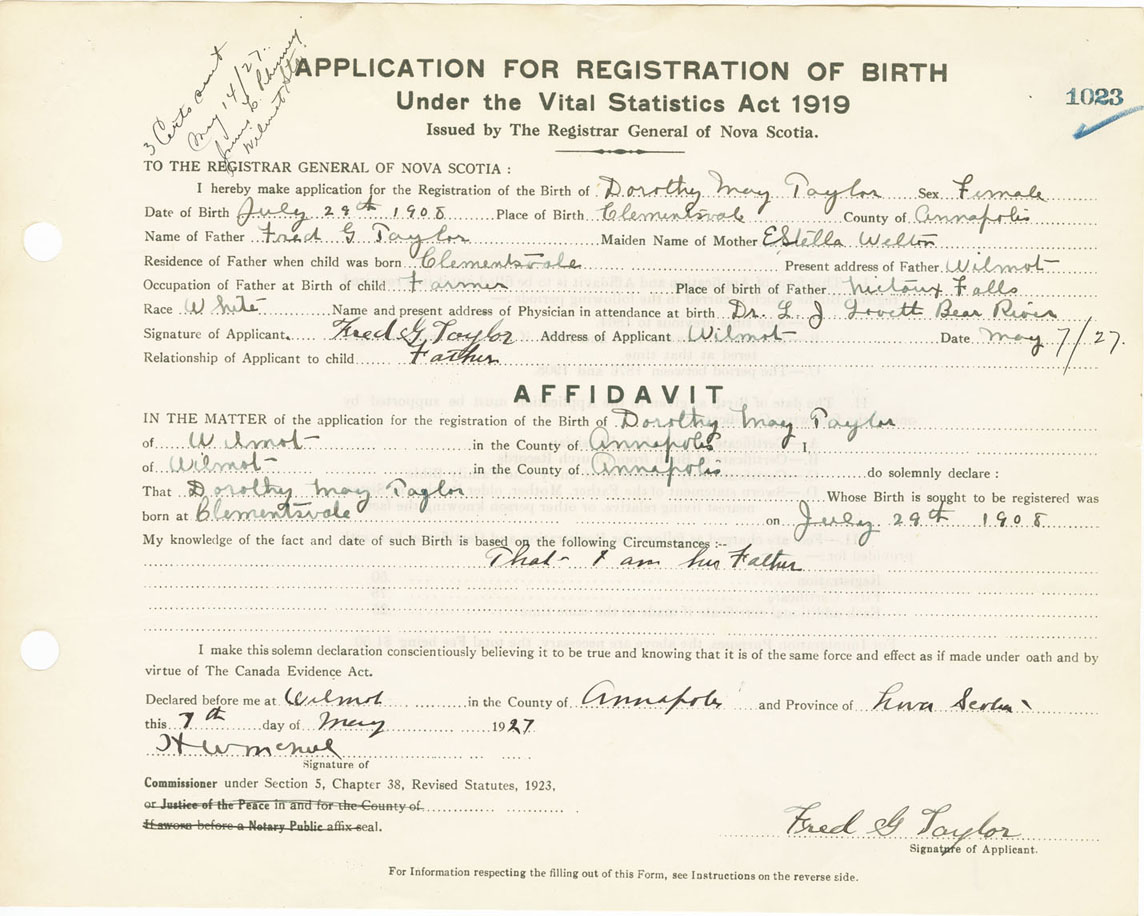 3 Certs sent
May 14/27.
Wilmot Stn.
APPLICATION FOR REGISTRATION OF BIRTH
1023
Under the Vital Statistics Act 1919
Issued by The Registrar General of Nova Scotia.
TO THE REGISTRAR GENERAL OF NOVA SCOTIA :
I hereby make application for the Registration of the Birth of Dorothy May Taylor Sex Female
Date of Birth July 29th 1908 Place of Birth Clementsvale County of Annapolis
Name of Father Fred G Taylor Maiden Name of Mother EStella Welton
Residence of Father when child was born Clementsvale Present address of Father Wilmot
Occupation of Father at Birth of child Farmer Place of birth of Father Nictoux Falls
Race White Name and present address of Physician in attendance at birth Dr. L J Lovett Bear River
Signature of Applicant. Fred G Taylor Address of Applicant Wilmot Date May 7/27.
Relationship of Applicant to child Father
AFFIDAVIT
IN THE MATTER of the application for the registration of the Birth of Dorothy May Taylor
of Wilmot in the County of Annapolis I,
of Wilmot in the County of Annapolis do solemnly declare :
That Dorothy May Taylor Whose Birth is sought to be registered was
born at Clementsvale on July 29th 1908
My knowledge of the fact and date of such Birth is based on the following Circumstances :--
That I am his Father
I make this solemn declaration conscientiously believing it to be true and knowing that it is of the same force and effect as if made under oath and by
virtue of The Canada Evidence Act.
Declared before me at Wilmot in the County of Annapolis and Province of Nova Scotia
this 7th day of May 1927
H W McNeil
Signature of
Commissioner under Section 5, Chapter 38, Revised Statutes, 1923,
or Justice of the Peace in and for the County of
If sworn before a Notary Public affix seal.
Fred G Taylor
Signature of Applicant.
For Information respecting the filling out of this Form, see Instructions on the reverse side.